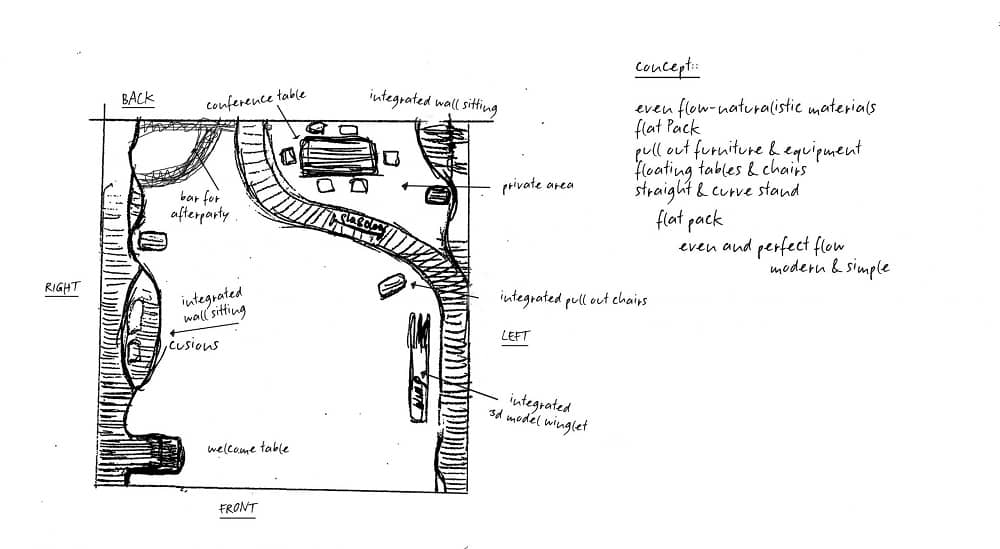 concept::
even flow-naturalistic materials
flat Pack
pull out furniture & equipment
floating tables & chairs
straight & curve stand
flat pack
even and perfect flow
modern & simple
BACK
conference table
integrated wall sitting
private area
bar for
afterparty
RIGHT
integrated
wall sitting
cusions
integrated pull out chairs
LEFT
integrated
3d model winglet
welcome table
FRONT